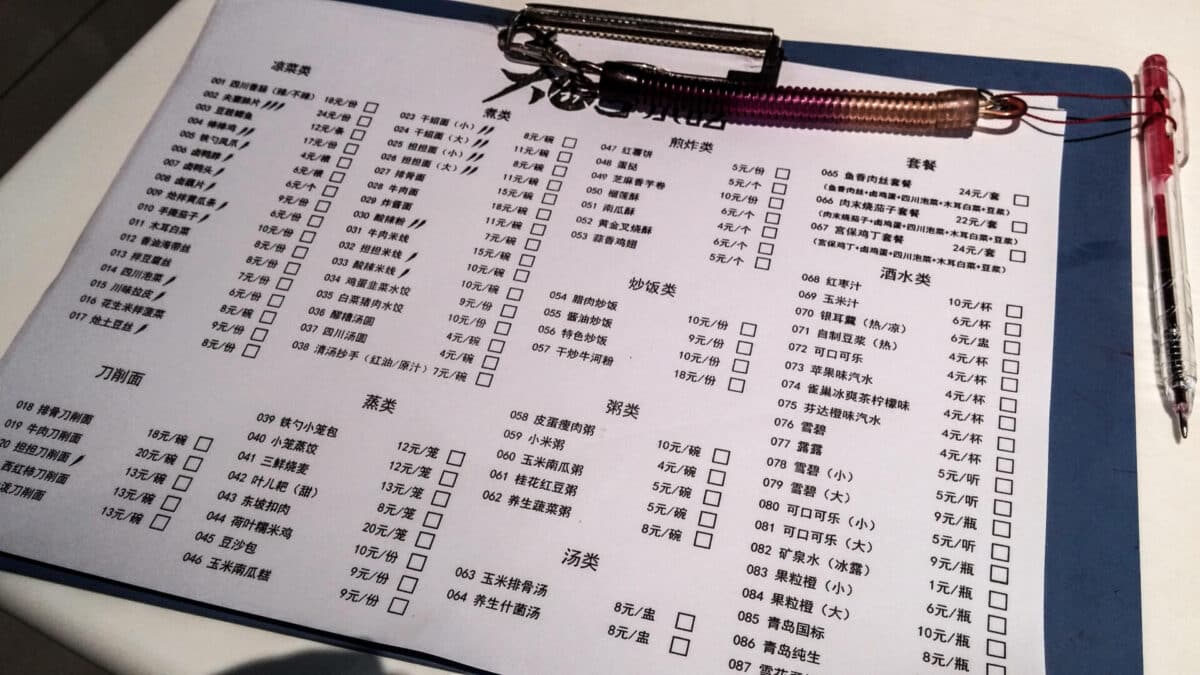 凉菜类
001 四川香肠（辣/不辣） 18元/份
002 夫妻肺片 24元/份
003 豆豉鲫鱼 12元/条
004 棒棒鸡 17元/份
005 铁勺凤爪
006 卤鸭脖
007 卤鸭头 6元/个
008 卤藕片 9元/份
009 炝拌黄瓜条 6元/份
010 手撕茄子 10元/份
011 木耳白菜 8元/份
012 香油海带丝 8元/份
013 拌豆腐丝 7元/份
014 四川泡菜 6元/份
015 川味拉皮 8元/碗
016 花生米拌菠菜 9元/份
017 炝土豆丝 8元/份
刀削面
018 排骨刀削面 18元/碗
019 牛肉刀削面 20元/碗
20 担担刀削面 13元/碗
西红柿刀削面 13元/碗
泼刀削面 13元/碗
煮类
023 干绍面（小） 8元/碗
024 干绍面（大） 11元/碗
025 担担面（小） 8元/碗
026 担担面（大） 11元/碗
027 排骨面 15元/碗
028 牛肉面 18元/碗
029 炸酱面 11元/碗
030 酸辣粉 7元/碗
031 牛肉米线 15元/碗
032 担担米线 10元/碗
033 酸辣米线 10元/碗
034 鸡蛋韭菜水饺 9元/份
035 白菜猪肉水饺 10元/份
036 醪糟汤圆 4元/碗
037 四川汤圆 4元/碗
038 清汤抄手（红油/原汁） 7元/碗
蒸类
039 铁勺小笼包 12元/笼
040 小笼蒸饺 12元/笼
041 三鲜烧麦 13元/笼
042 叶儿粑（甜） 8元/笼
043 东坡扣肉 20元/笼
044 荷叶糯米鸡 10元/份
045 豆沙包 9元/份
046 玉米南瓜糕 9元/份
煎炸类
047 红薯饼 5元/份
048 蛋挞 5元/个
049 芝麻香芋卷 10元/份
050 榴莲酥 6元/个
051 南瓜酥 4元/个
052 黄金叉烧酥 6元/个
053 蒜香鸡翅 5元/个
炒饭类
054 腊肉炒饭 10元/份
055 酱油炒饭 9元/份
056 特色炒饭 10元/份
057 干炒牛河粉 18元/份
粥类
058 皮蛋瘦肉粥 10元/碗
059 小米粥 4元/碗
060 玉米南瓜粥 5元/碗
061 桂花红豆粥 5元/碗
062 养生蔬菜粥 8元/碗
汤类
063 玉米排骨汤 8元/盅
064 养生什菌汤 8元/盅
套餐
065 鱼香肉丝套餐 24元/套
（鱼香肉丝+卤鸡蛋+四川泡菜+木耳白菜+豆浆）
066 肉末烧茄子套餐 22元/套
（肉末烧茄子+卤鸡蛋+四川泡菜+木耳白菜+豆浆）
067 宫保鸡丁套餐 24元/套
（宫保鸡丁+卤鸡蛋+四川泡菜+木耳白菜+豆浆）
酒水类
068 红枣汁 10元/杯
069 玉米汁 6元/杯
070 银耳羹（热/凉） 6元/盅
071 自制豆浆（热） 4元/杯
072 可口可乐 4元/杯
073 苹果味汽水 4元/杯
074 雀巢冰爽茶柠檬味 4元/杯
075 芬达橙味汽水 4元/杯
076 雪碧 4元/杯
077 露露 5元/听
078 雪碧（小） 5元/听
079 雪碧（大） 9元/瓶
080 可口可乐（小） 5元/听
081 可口可乐（大） 9元/瓶
082 矿泉水（冰露） 1元/瓶
083 果粒橙（小） 6元/瓶
084 果粒橙（大） 10元/瓶
085 青岛国标 8元/瓶
086 青岛纯生
087